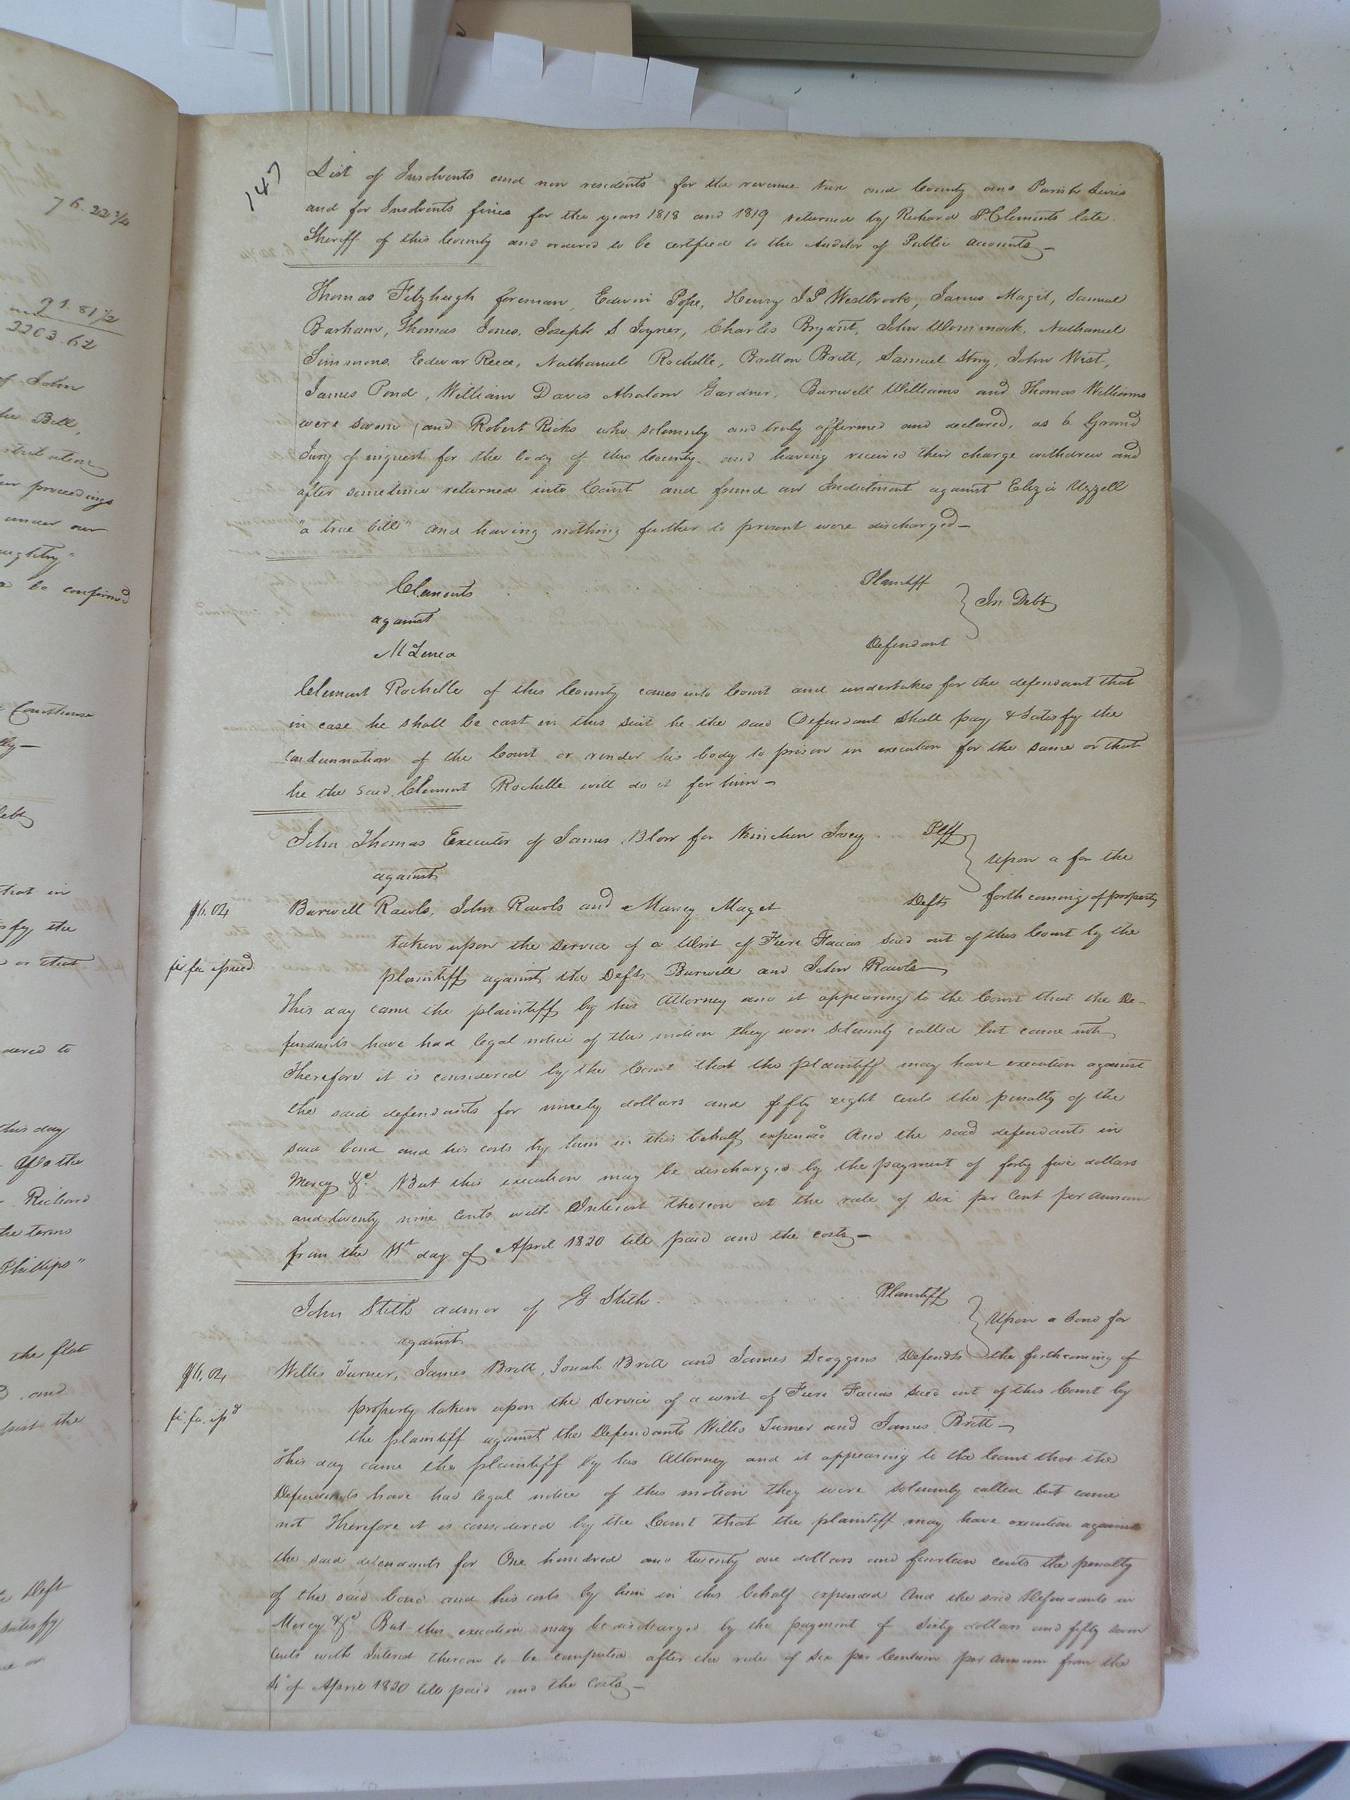 147
List of Insolvents and non residents for the revenue tax and County and Parish Levies
and for Insolvents fines for the years 1818 and 1819 returned by Richard P Clements late
Sheriff of this County and ordered to be certified to the Auditor of Public accounts —
Thomas Fitzhugh foreman, Edwin Pope, Henry J P Westbrook, James Magit, Samuel
Barham, Thomas Jones, Joseph S Joyner, Charles Bryant, John Wommack, Nathaniel
Simmons, Edwar Reese, Nathaniel Rochelle, Bratton Britt, Samuel Story, John West,
James Pond, William Davis Absalom Gardner, Burwell Williams and Thomas Williams
were sworn (and Robert Ricks who solemnly and truly affirmed and declared, as a Grand
Jury of inquest for the body of this County and having received their charge withdrew and
after sometime returned into Court and found an Indictment against Uzzell
"a true bill" and having nothing further to present were discharged —
Clements Plaintiff
against In Debt
Defendant
Clement Rochelle of this County comes into Court and undertakes for the defendant that
in case he shall be cast in this suit he the said Defendant shall pay & satisfy the
Condemnation of the Court or render his body to prison in execution for the same or that
he the said Clement Rochelle will do it for him —
John Thomas Executor of James Blow for Kinchen Ivey Plff
against Upon a for the
Burwell Rawls, John Rawls and Maget Defts forthcoming of property
taken upon the service of a Writ of Fiere Facias sued out of this Court by the
fi fa issued
plaintiff against the Defts Burwell and John Rawls —
This day came the plaintiff by his Attorney and it appearing to the Court that the De-
fendants have had legal notice of this motion they were solemnly called but came not
Therefore it is considered by the Court that the plaintiff may have execution against
the said defendants for ninety dollars and fifty eight Cents the penalty of the
said bond and his costs by him in this behalf expended And the said defendants in
Mercy &c. But this execution may be discharged by the payment of forty five dollars
and twenty nine Cents with Interest thereon at the rate of six per Cent per annum
from the day of April 1820 till paid and the costs —
John Stith admor of G Stith Plaintiff
against Upon a bond for
Willis Turner, James Britt, Josiah Britt and James Scoggins Defendts the forthcoming of
property taken upon the service of a writ of Fiere Facias sued out of this Court by
fi. fa. isd
the plaintiff against the Defendants Willis Turner and James Britt —
This day came the plaintiff by his Attorney and it appearing to the Court that the
Defendants have had legal notice of this motion they were solemnly called but came
not Therefore it is considered by the Court that the plaintiff may have execution against
the said defendants for One hundred and twenty one dollars and fourteen cents the penalty
of the said bond and his costs by him in this behalf expended And the said Defendants in
Mercy &c But this execution may be discharged by the payment of Sixty dollars and fifty seven
Cents with Interest thereon to be computed after the rate of six per Centum per annum from the
4th of April 1820 till paid and the Costs —